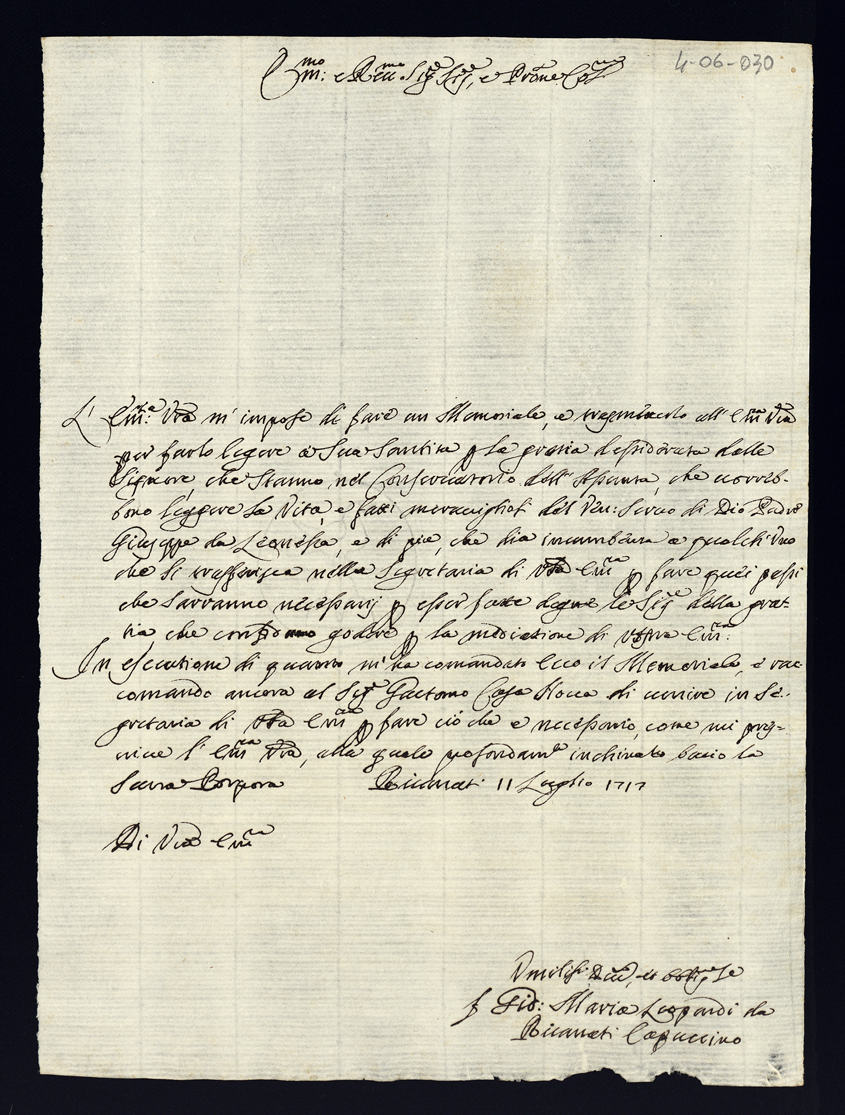 Em:mo e R.mo Sig.re Sig.re, e Prone Col.mo
4-06-030
L' Em:za Vra m' impose di fare un Memoriale, e trasmeterlo all' Em.za Vra
per farlo legere a Sua Santita p la gratia desiderata dalle
Signore, che stanno nel Conservatorio dell' Assunta, che vorreb-
bono leggere la Vita, e fatti meravigliosi del Ven: Servo di Dio Padre
Giuseppe da Leonessa, e di piu, che dia incumbenza a qualchuno
che si trasferisca nella Segretaria di Vra Em.za p fare quei passi
che saranno necessarij p esser fatte degne le Sig.re della gra-
tia che confidano godere p la mediatione di vostra Em.za:
In esecutione di quanto m' ha comandato Ecco il Memoriale, e rac-
comando ancora al Sig.r Gaetano Casa Rocca di venire in Se-
gretaria di Vra Em.za p fare ciò che e necessario, come mi
l' Em.za Vra, alla quale profondam.te inchinato bacio la
Sacra Porpora Ricanati 11 Luglio 1717
Di Vra Em.za
Umiliss. et
f Gio: Maria Leopardi da
Ricanati Capuccino